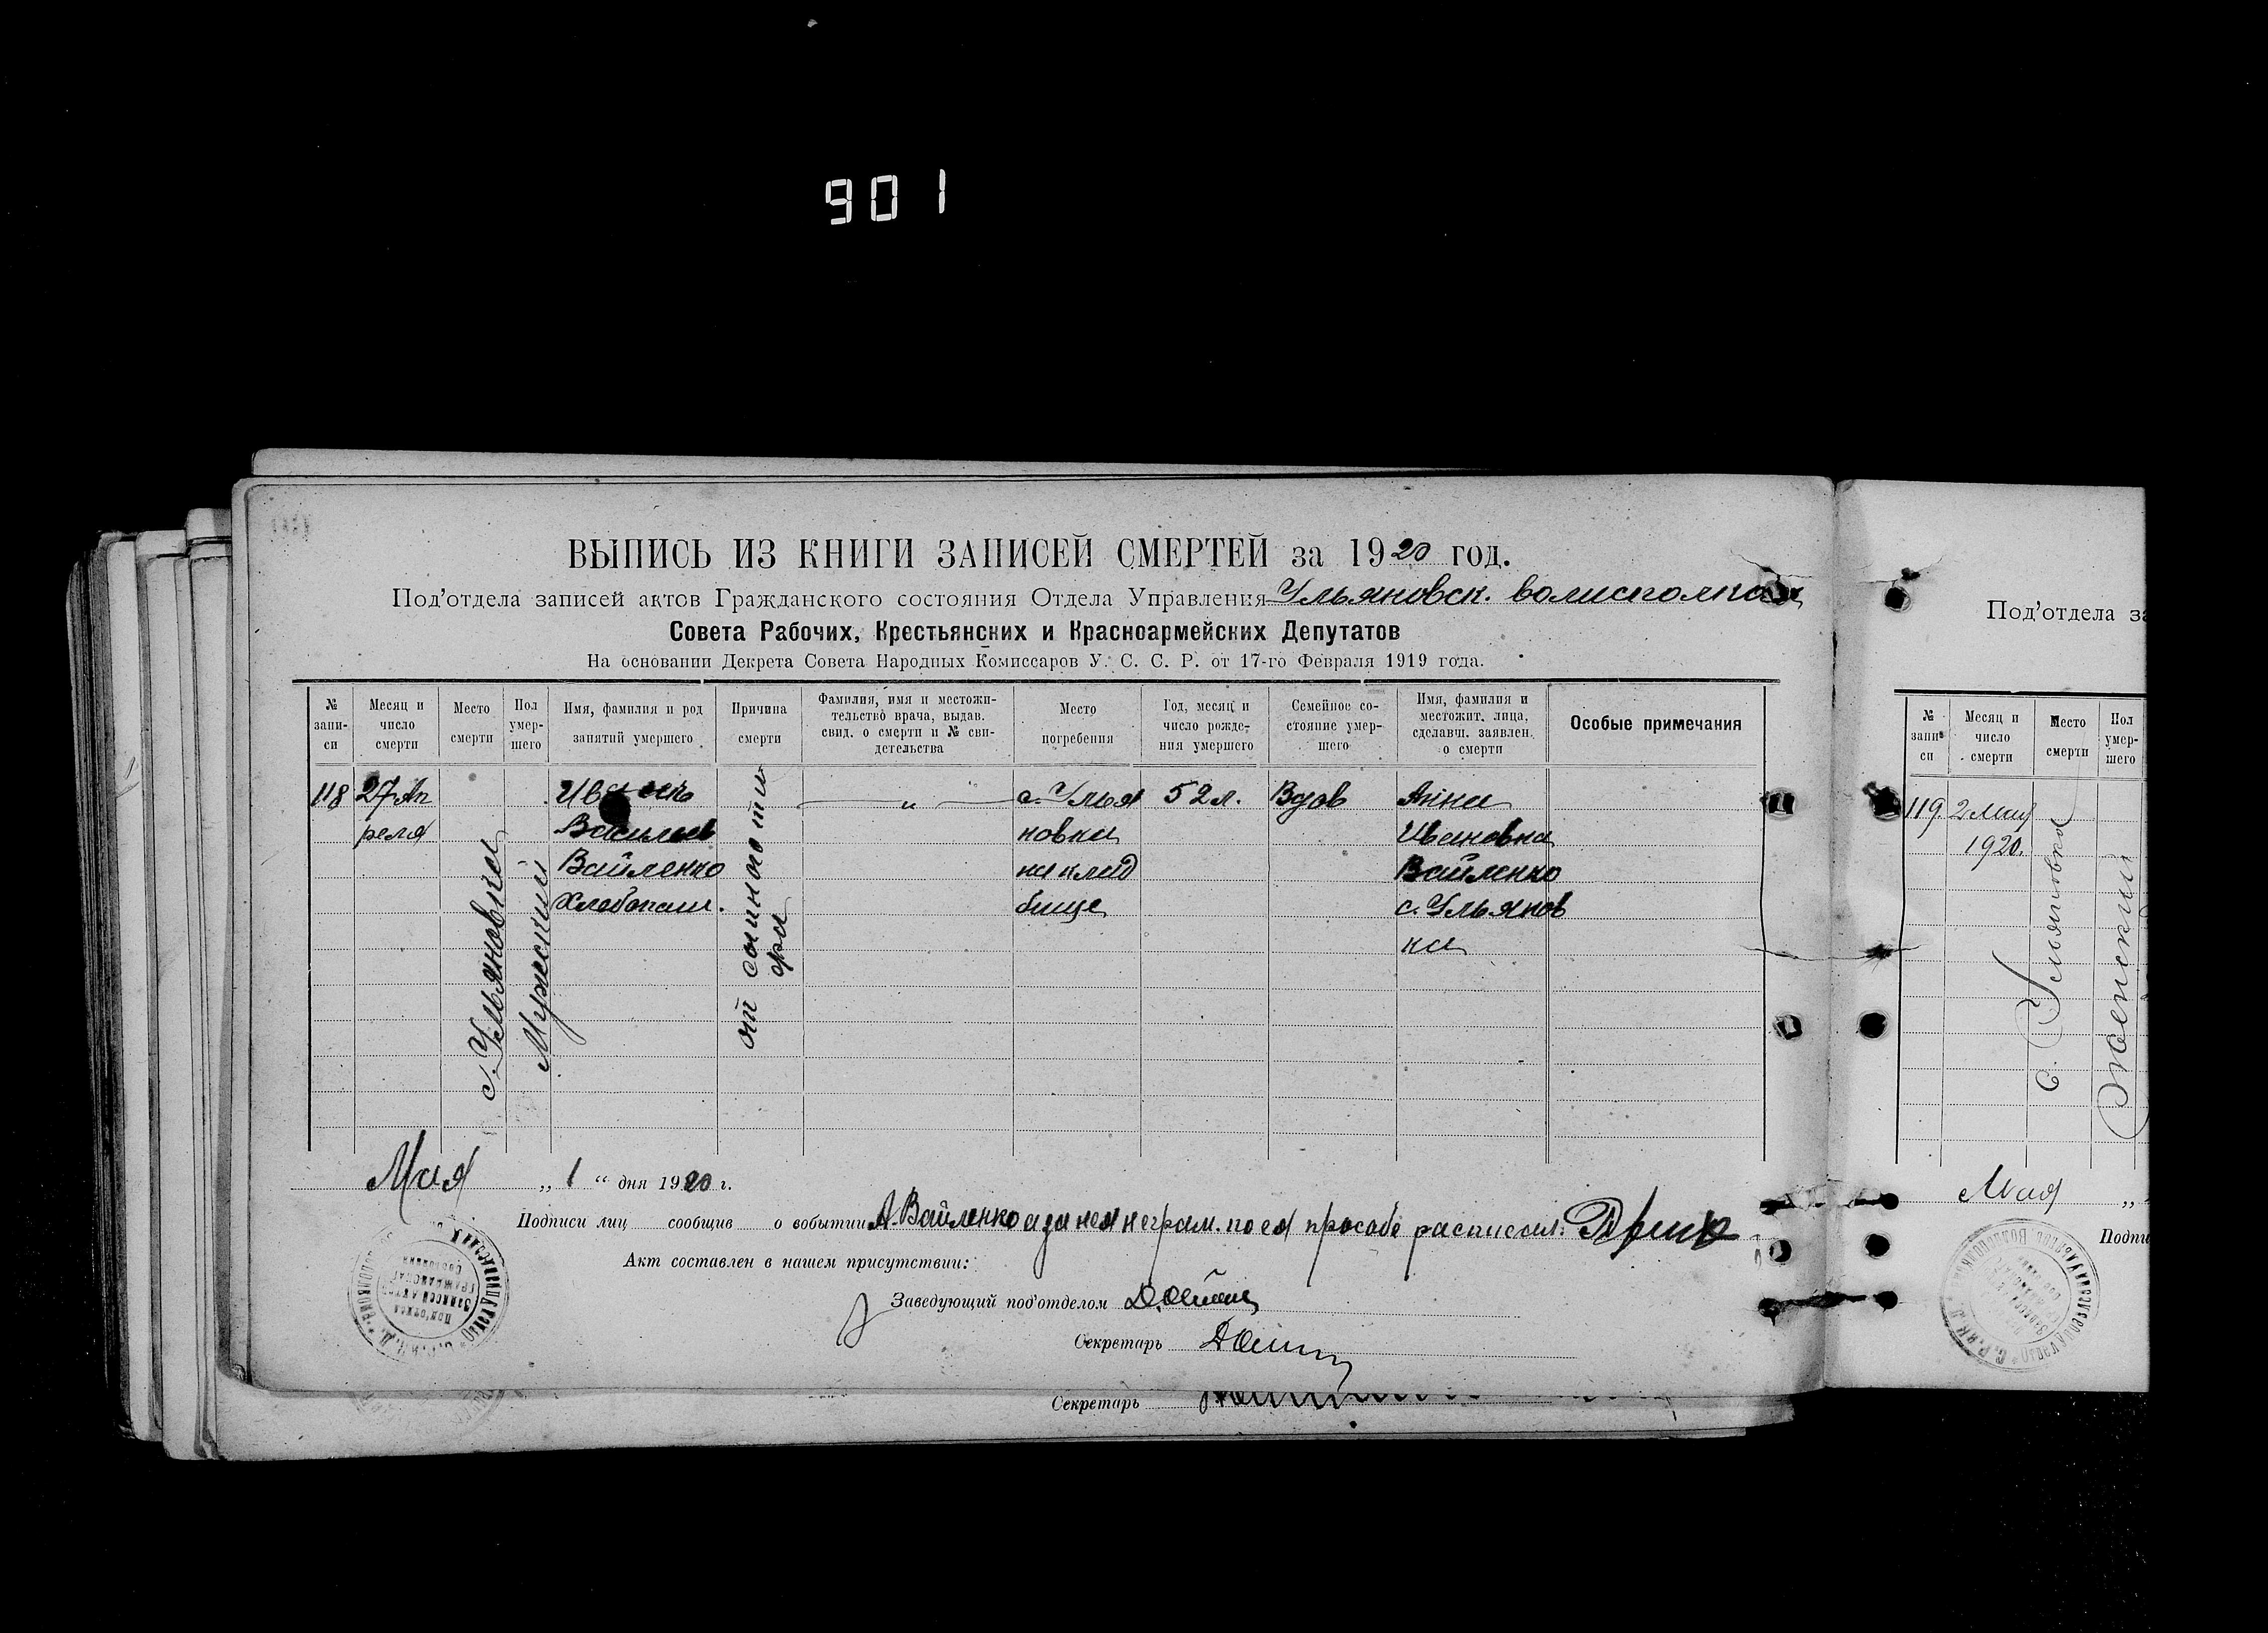 901
ВЫПИСЬ ИЗ КНИГИ ЗАПИСЕЙ СМЕРТЕЙ за 1920 год.
Под'отдела записей актов Гражданского состояния Отдела Управления Ульяновск. волисполкома
Совета Рабочих, Крестьянских и Красноармейских Депутатов
На основании Декрета Совета Народных Комиссаров У. С. С. Р. от 17-го Февраля 1919 года.
№ запи-си
Месяц и число смерти
Место смерти
Пол умер-шего
Имя, фамилия и род занятий умершего
Причина смерти
Фамилия, имя и местожи-тельство врача, выдав. свид. о смерти и № сви-детельства
Место погребения
Год, месяц и число рожде-ния умершего
Семейное со-стояние умер-шего
Имя, фамилия и местожит. лица, сделавш. заявлен. о смерти
Особые примечания
118
27 Ап
реля
с. Ульяновка
Мужской
Иван
Васильев
Вайленко
Хлебопаш.
от
"
с. Улья
новки
на клад
бище
52 л.
Вдов
Анна
Ивановна
Вайленко
с. Ульянов
ка
Мая „ 1 “ дня 1920 г.
Подписи лиц сообщив о вобытии А. Вайленко а за нея неграм. по ея прозьбе расписал:
Акт составлен в нашем присутствии:
Заведующий под'отделом
Секретарь
Секретарь
Под'отдела за
№ запи-си
Месяц и число смерти
Место смерти
Пол умер-шего
119.
2 Мая
1920.
с. Ульяновка
Женский
Мая „
Подпи